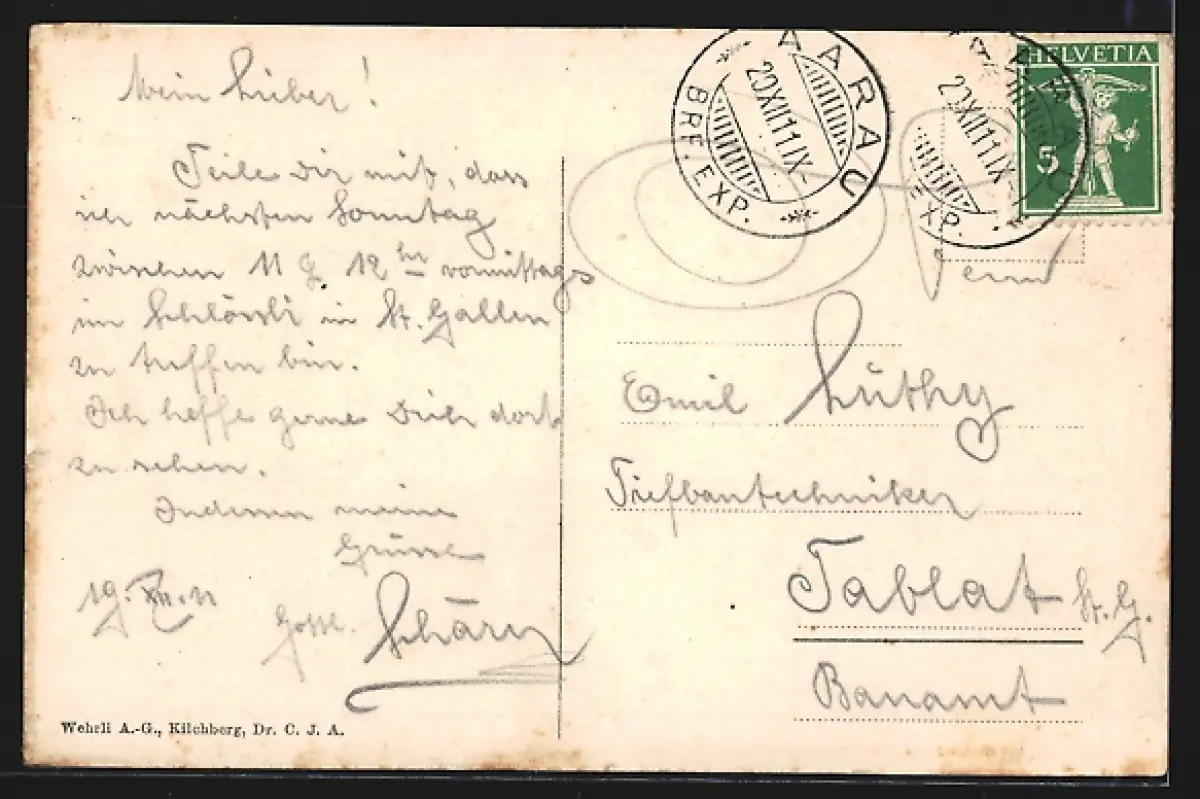 Mein Lieber!
Teile Dir mit, dass
ich nächsten Sonntag
zwischen 11 & 12 Uhr vormittags
im Schlössli in St. Gallen
zu treffen bin.
Ich hoffe gerne Dich dort
zu sehen.
Indessen meine
Grüsse
19. XII. 11
Gottl. Schärer
Wehrli A.-G., Kilchberg, Dr. C. J. A.
AARAU
20 XII 11 IX-
BRF. EXP.
AARAU
20 XII 11 IX-
EXP.
HELVETIA
5
Herrn
Emil Lüthy
Tiefbautechniker
Tablat St. G.
Bauamt